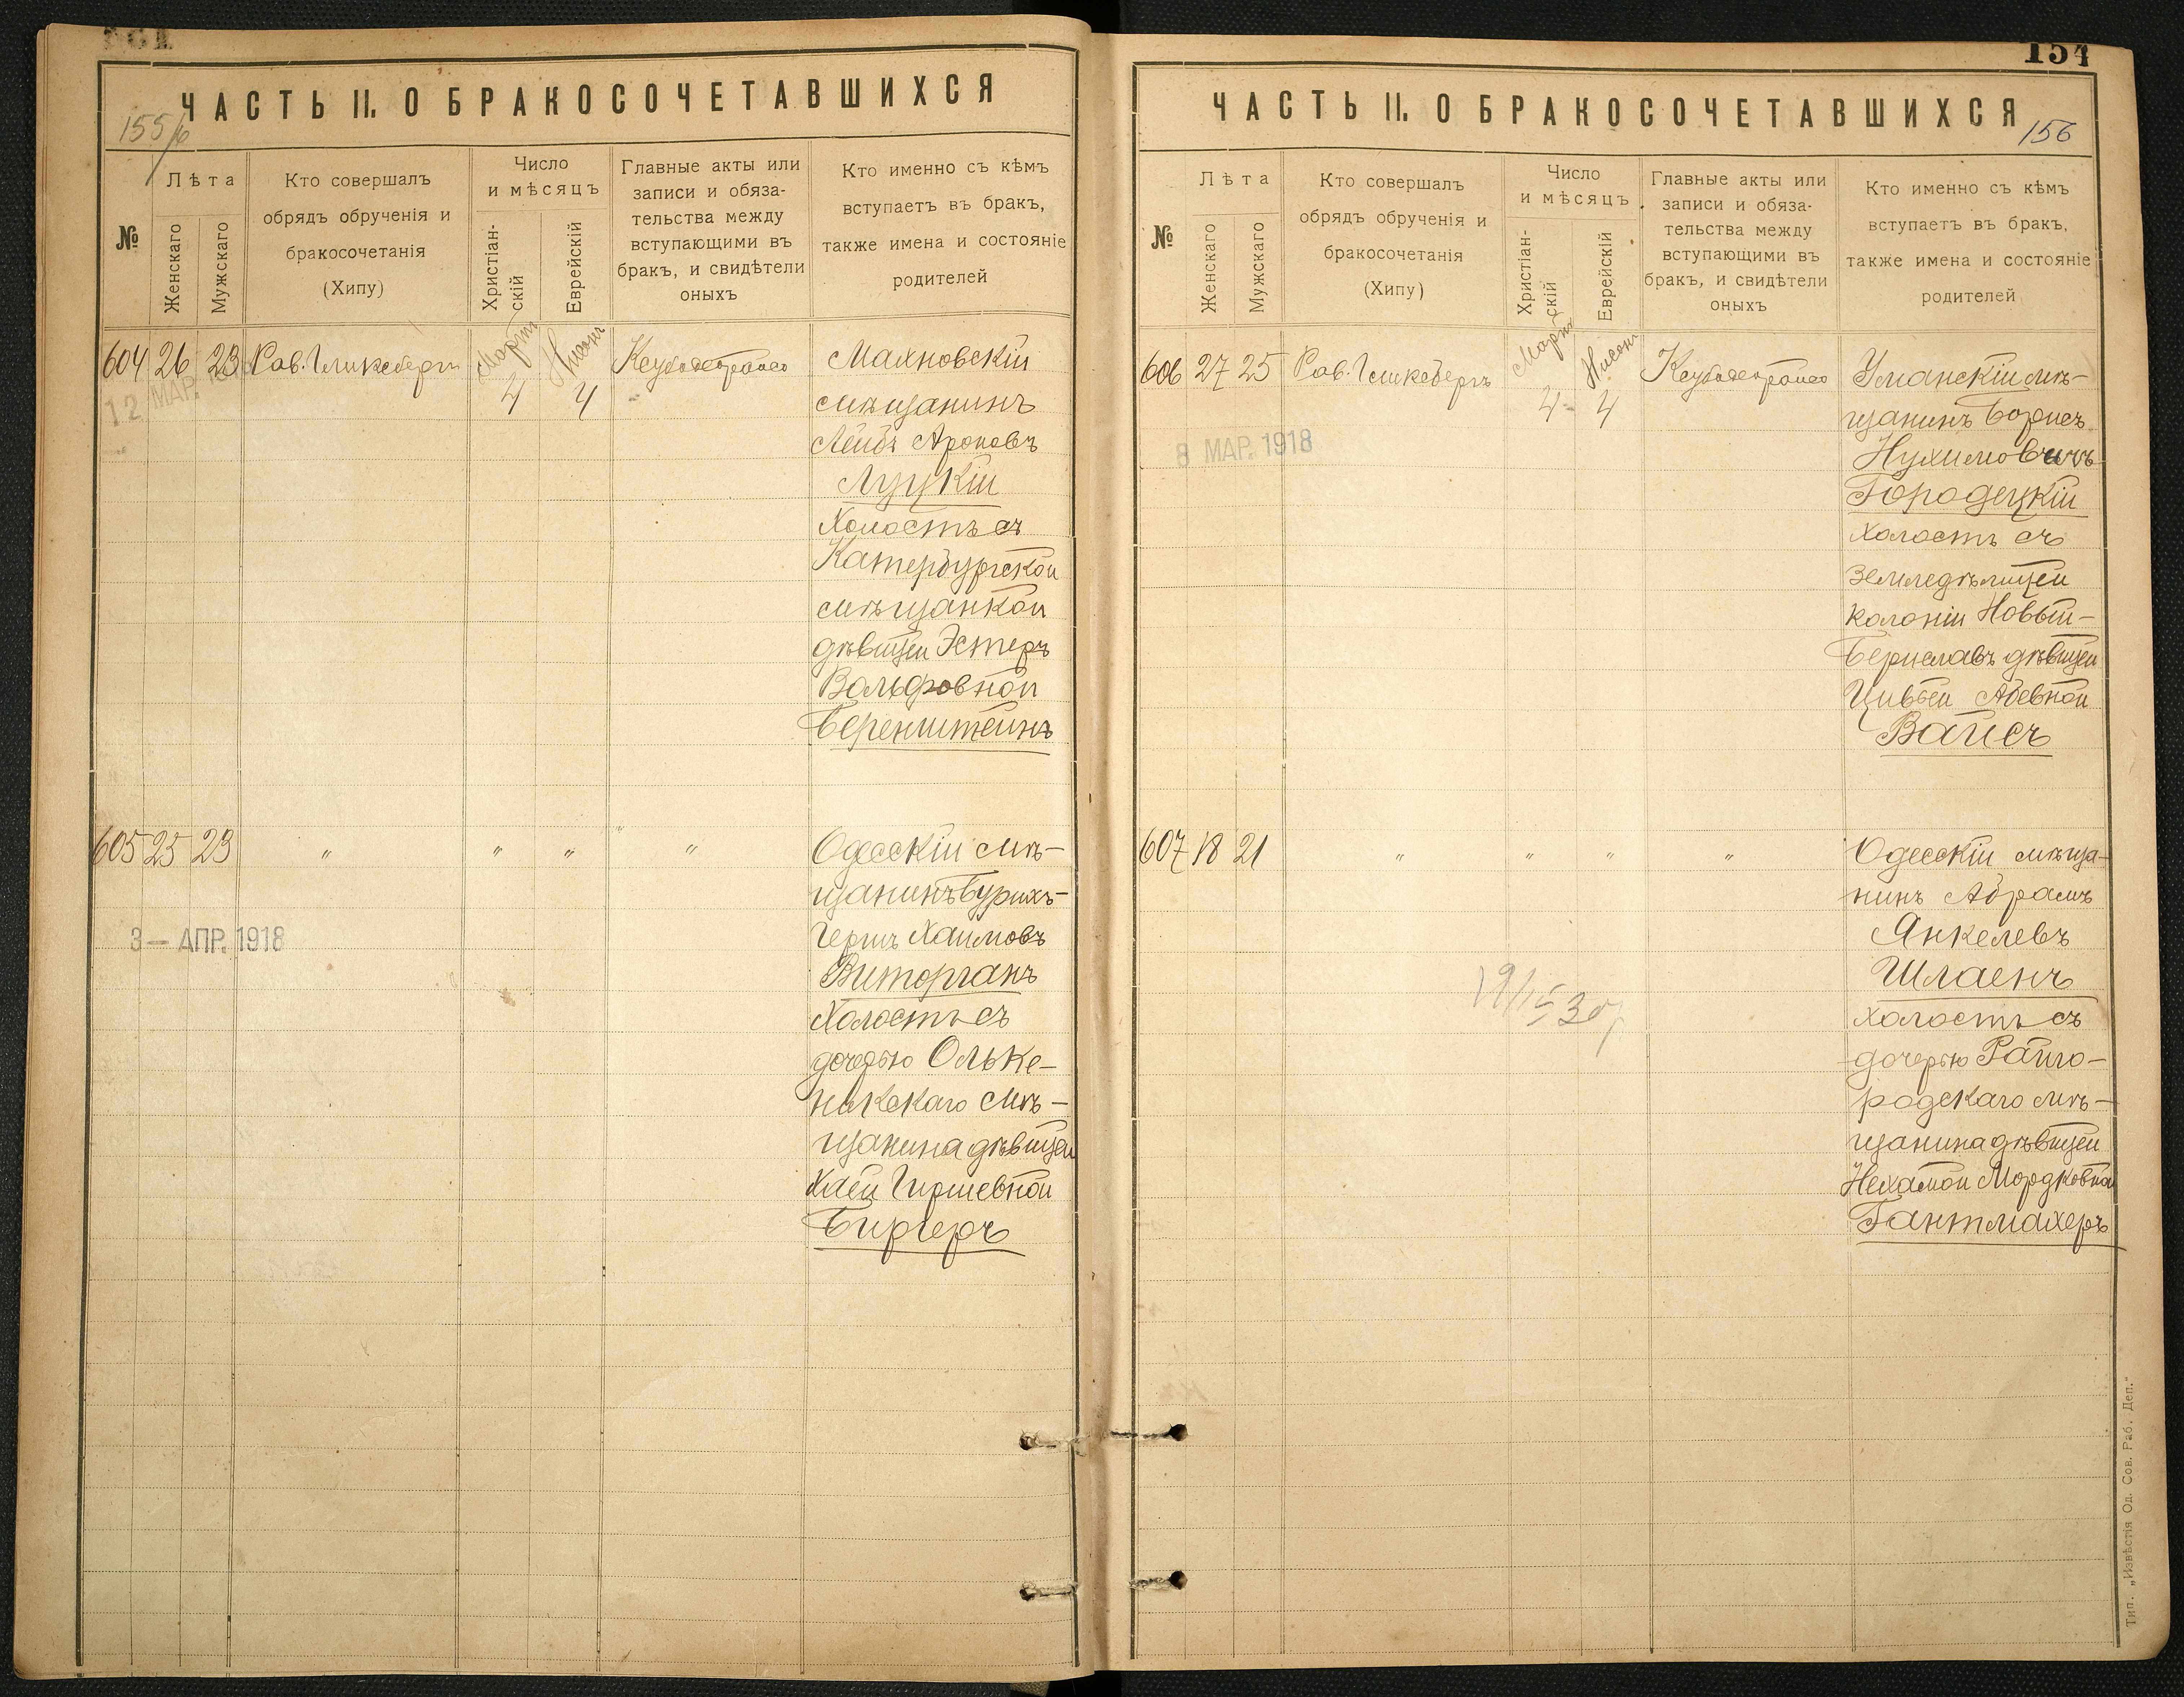 ЧАСТЬ II. О БРАКОСОЧЕТАВШИХСЯ
155/6
№
Лѣта
Женскаго
Мужскаго
Кто совершалъ
обрядъ обрученія и
бракосочетанія
(Хипу)
Число
и мѣсяцъ
Христіан-
скій
Еврейскій
Главные акты или
записи и обяза-
тельства между
вступающими въ
бракъ, и свидѣтели
оныхъ
Кто именно съ кѣмъ
вступаетъ въ бракъ,
также имена и состояніе
родителей
604 26 23 Рав. Гликсбергъ Мартъ 4 Нисонъ 4
12 МАР.
Махновскій
мѣщанинъ
Лейбъ Ароновъ
Луцкій
Холостъ съ
Катербургской
мѣщанкой
дѣвицей Эстеръ
Вольфовной
Беренштейнъ
605 25 23 " " " "
3 – АПР. 1918
Одесскій мѣ-
щанинъ Бурихъ-
Гершъ Хаимовъ
Виторганъ
Холостъ съ
дочерью Ольке-
никскаго мѣ-
щанина дѣвицей
Хаей Гиршевной
Биргеръ
154
ЧАСТЬ II. О БРАКОСОЧЕТАВШИХСЯ
156
№
Лѣта
Женскаго
Мужскаго
Кто совершалъ
обрядъ обрученія и
бракосочетанія
(Хипу)
Число
и мѣсяцъ
Христіан-
скій
Еврейскій
Главные акты или
записи и обяза-
тельства между
вступающими въ
бракъ, и свидѣтели
оныхъ
Кто именно съ кѣмъ
вступаетъ въ бракъ,
также имена и состояніе
родителей
606 27 25 Рав. Гликсбергъ Мартъ 4 Нисонъ 4
8 МАР. 1918
Уманскій мѣ-
щанинъ Борисъ
Нухимовичъ
Городецкій
холостъ съ
земледѣлицей
колоніи Новый-
Бериславъ дѣвицей
Цивьей Абевной
Вайсъ
607 18 21 " " " "
Одесскій мѣща-
нинъ Абрамъ
Янкелевъ
Шлаенъ
холостъ съ
дочерью Райго-
родскаго мѣ-
щанина дѣвицей
Нехамой Мордковной
Гантмахеръ
Тип. „Извѣстія Од. Сов. Раб. Деп."